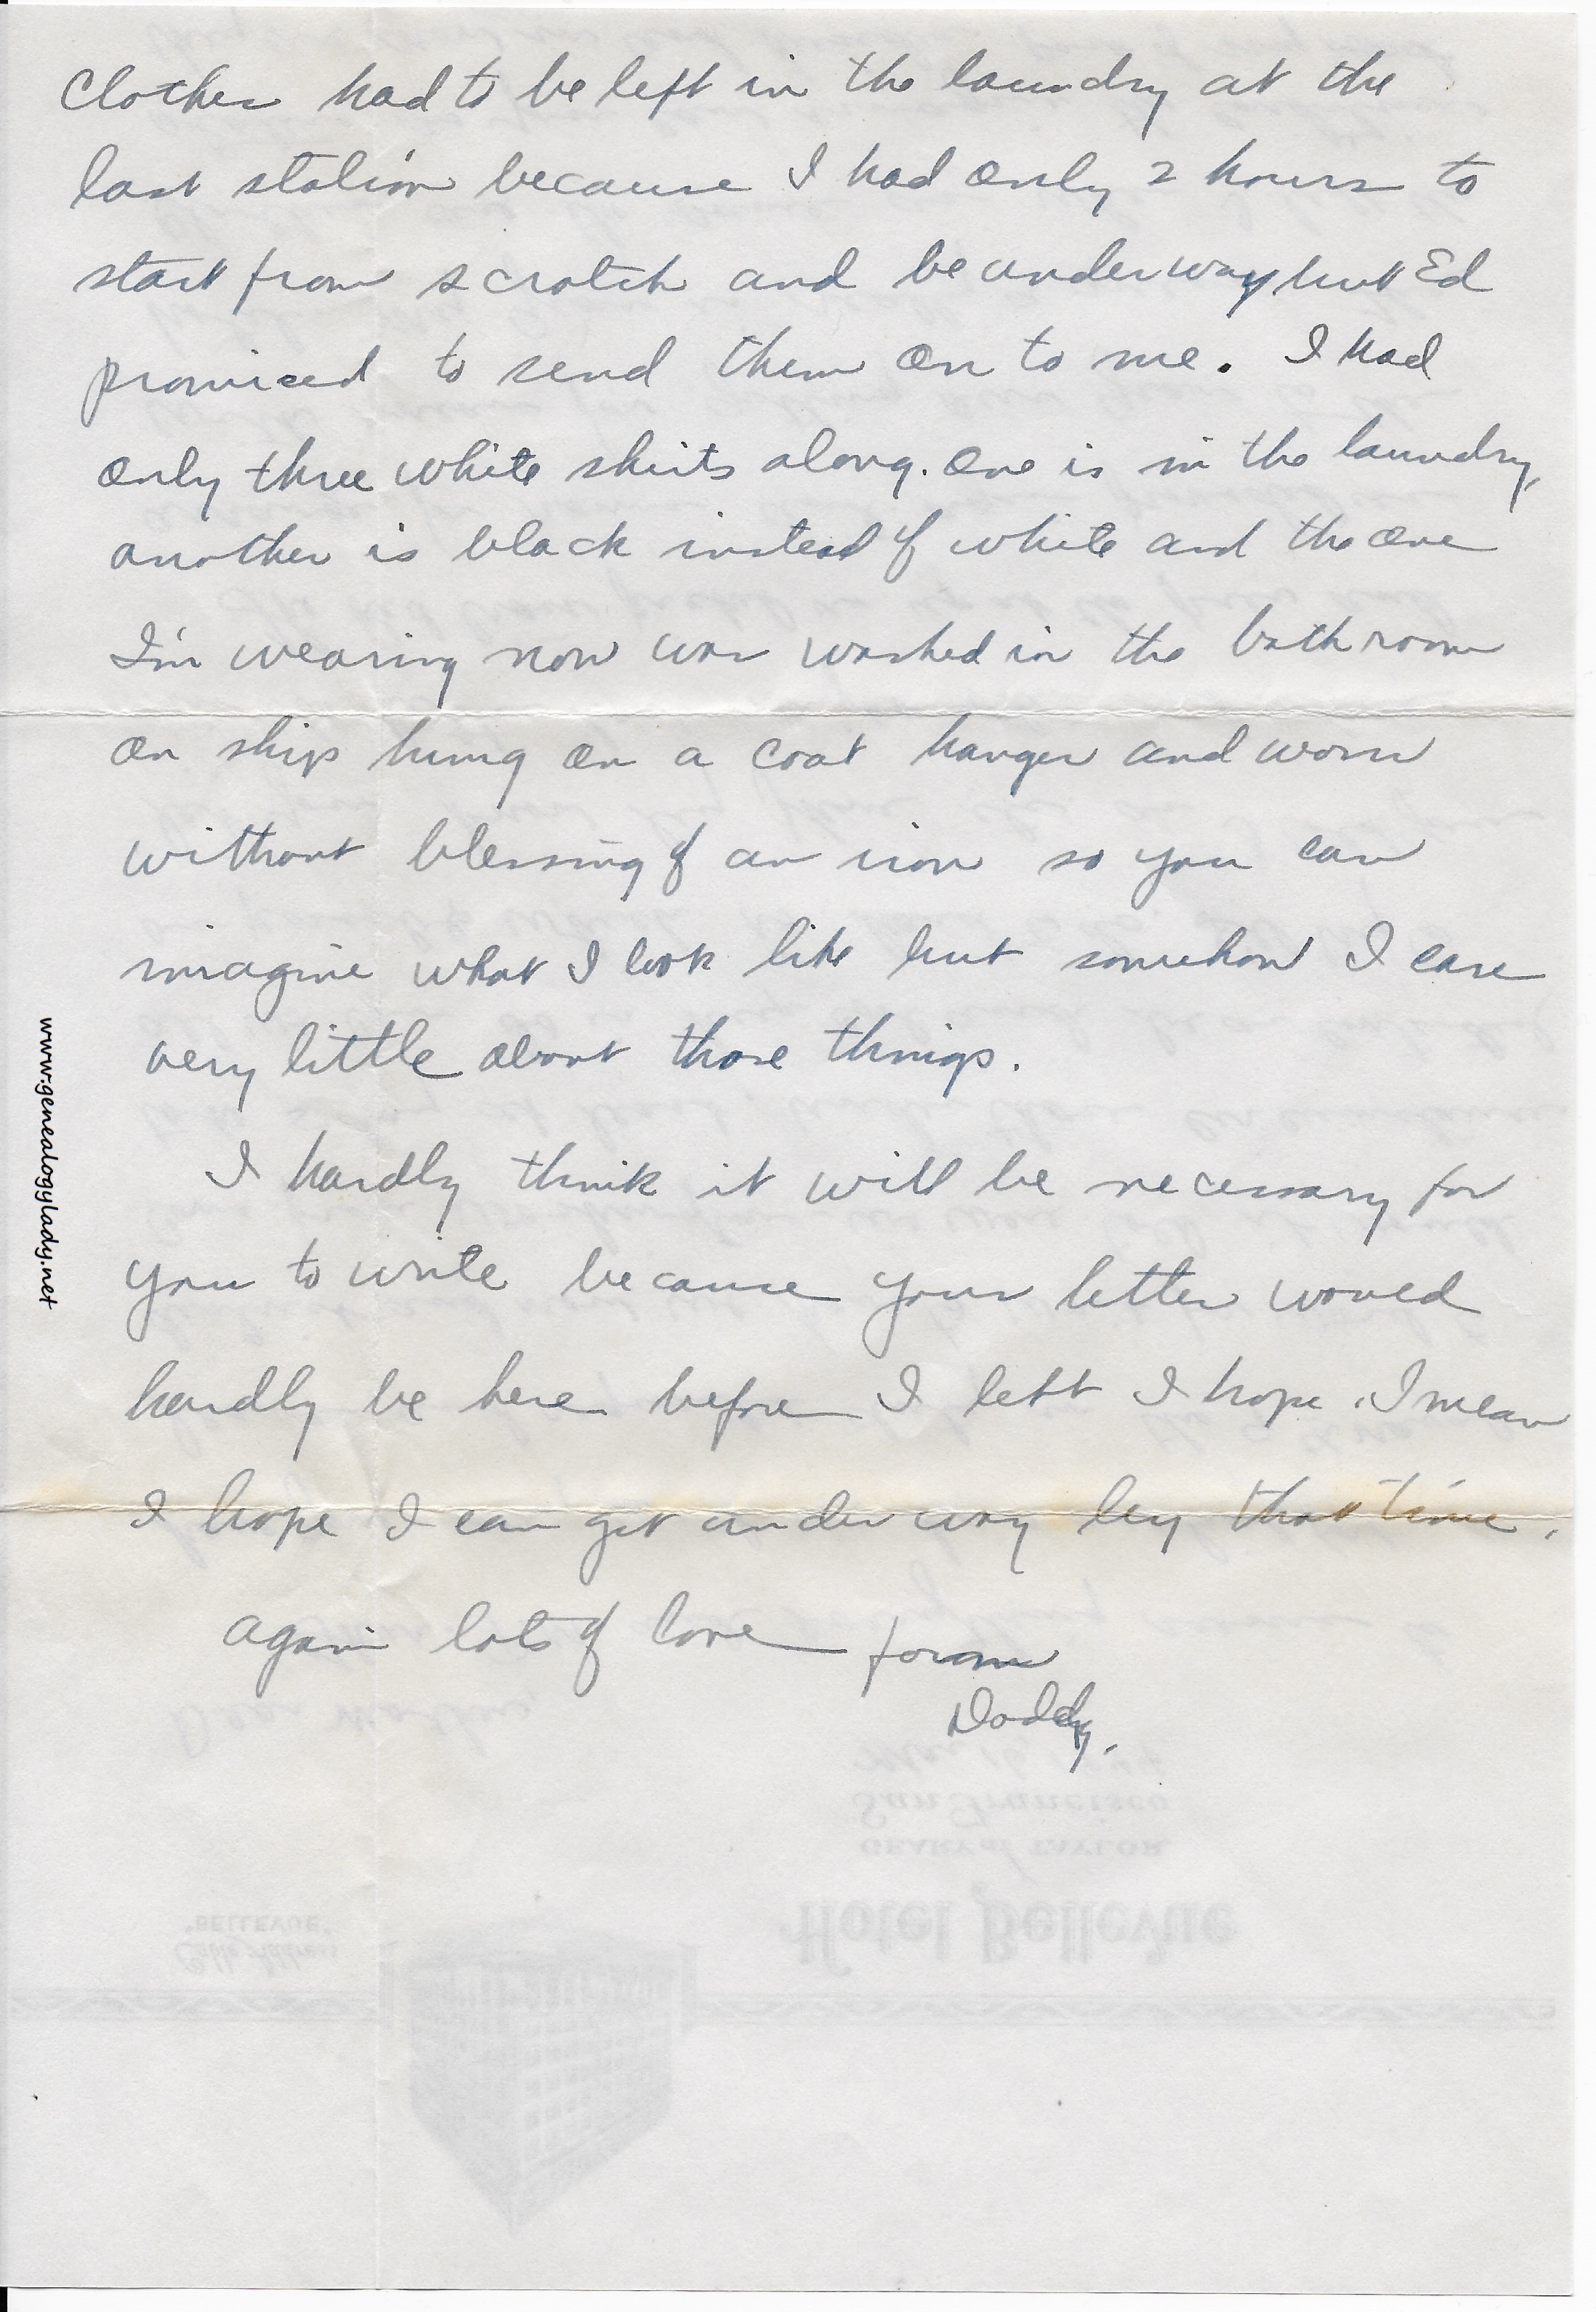 Clothes had to be left in the laundry at the
last station because I had only 2 hours to
start from scratch and be underway but Ed
promised to send them on to me. I had
only three white shirts along. One is in the laundry,
another is black instead of white and the one
I'm wearing now was washed in the bathroom
on ship hung on a coat hanger and worn
without blessing of an iron so you can
imagine what I look like but somehow I care
very little about those things.
I hardly think it will be necessary for
you to write because your letter would
hardly be here before I left I hope. I mean
I hope I can get under way by that time.
Again lots of love from
Daddy.
www.genealogylady.net
San Francisco
GEARY at TAYLOR
Hotel Bellevue
"BELLEVUE"
Cable Address